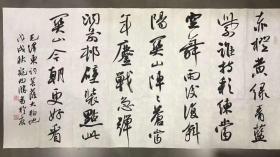 赤橙黄绿青蓝
紫谁持彩练当
空舞雨后复斜
阳关山阵阵苍当
年鏖战急弹
洞前村壁装点此
关山今朝更好看
毛泽东词菩萨蛮大柏地
戊戌秋